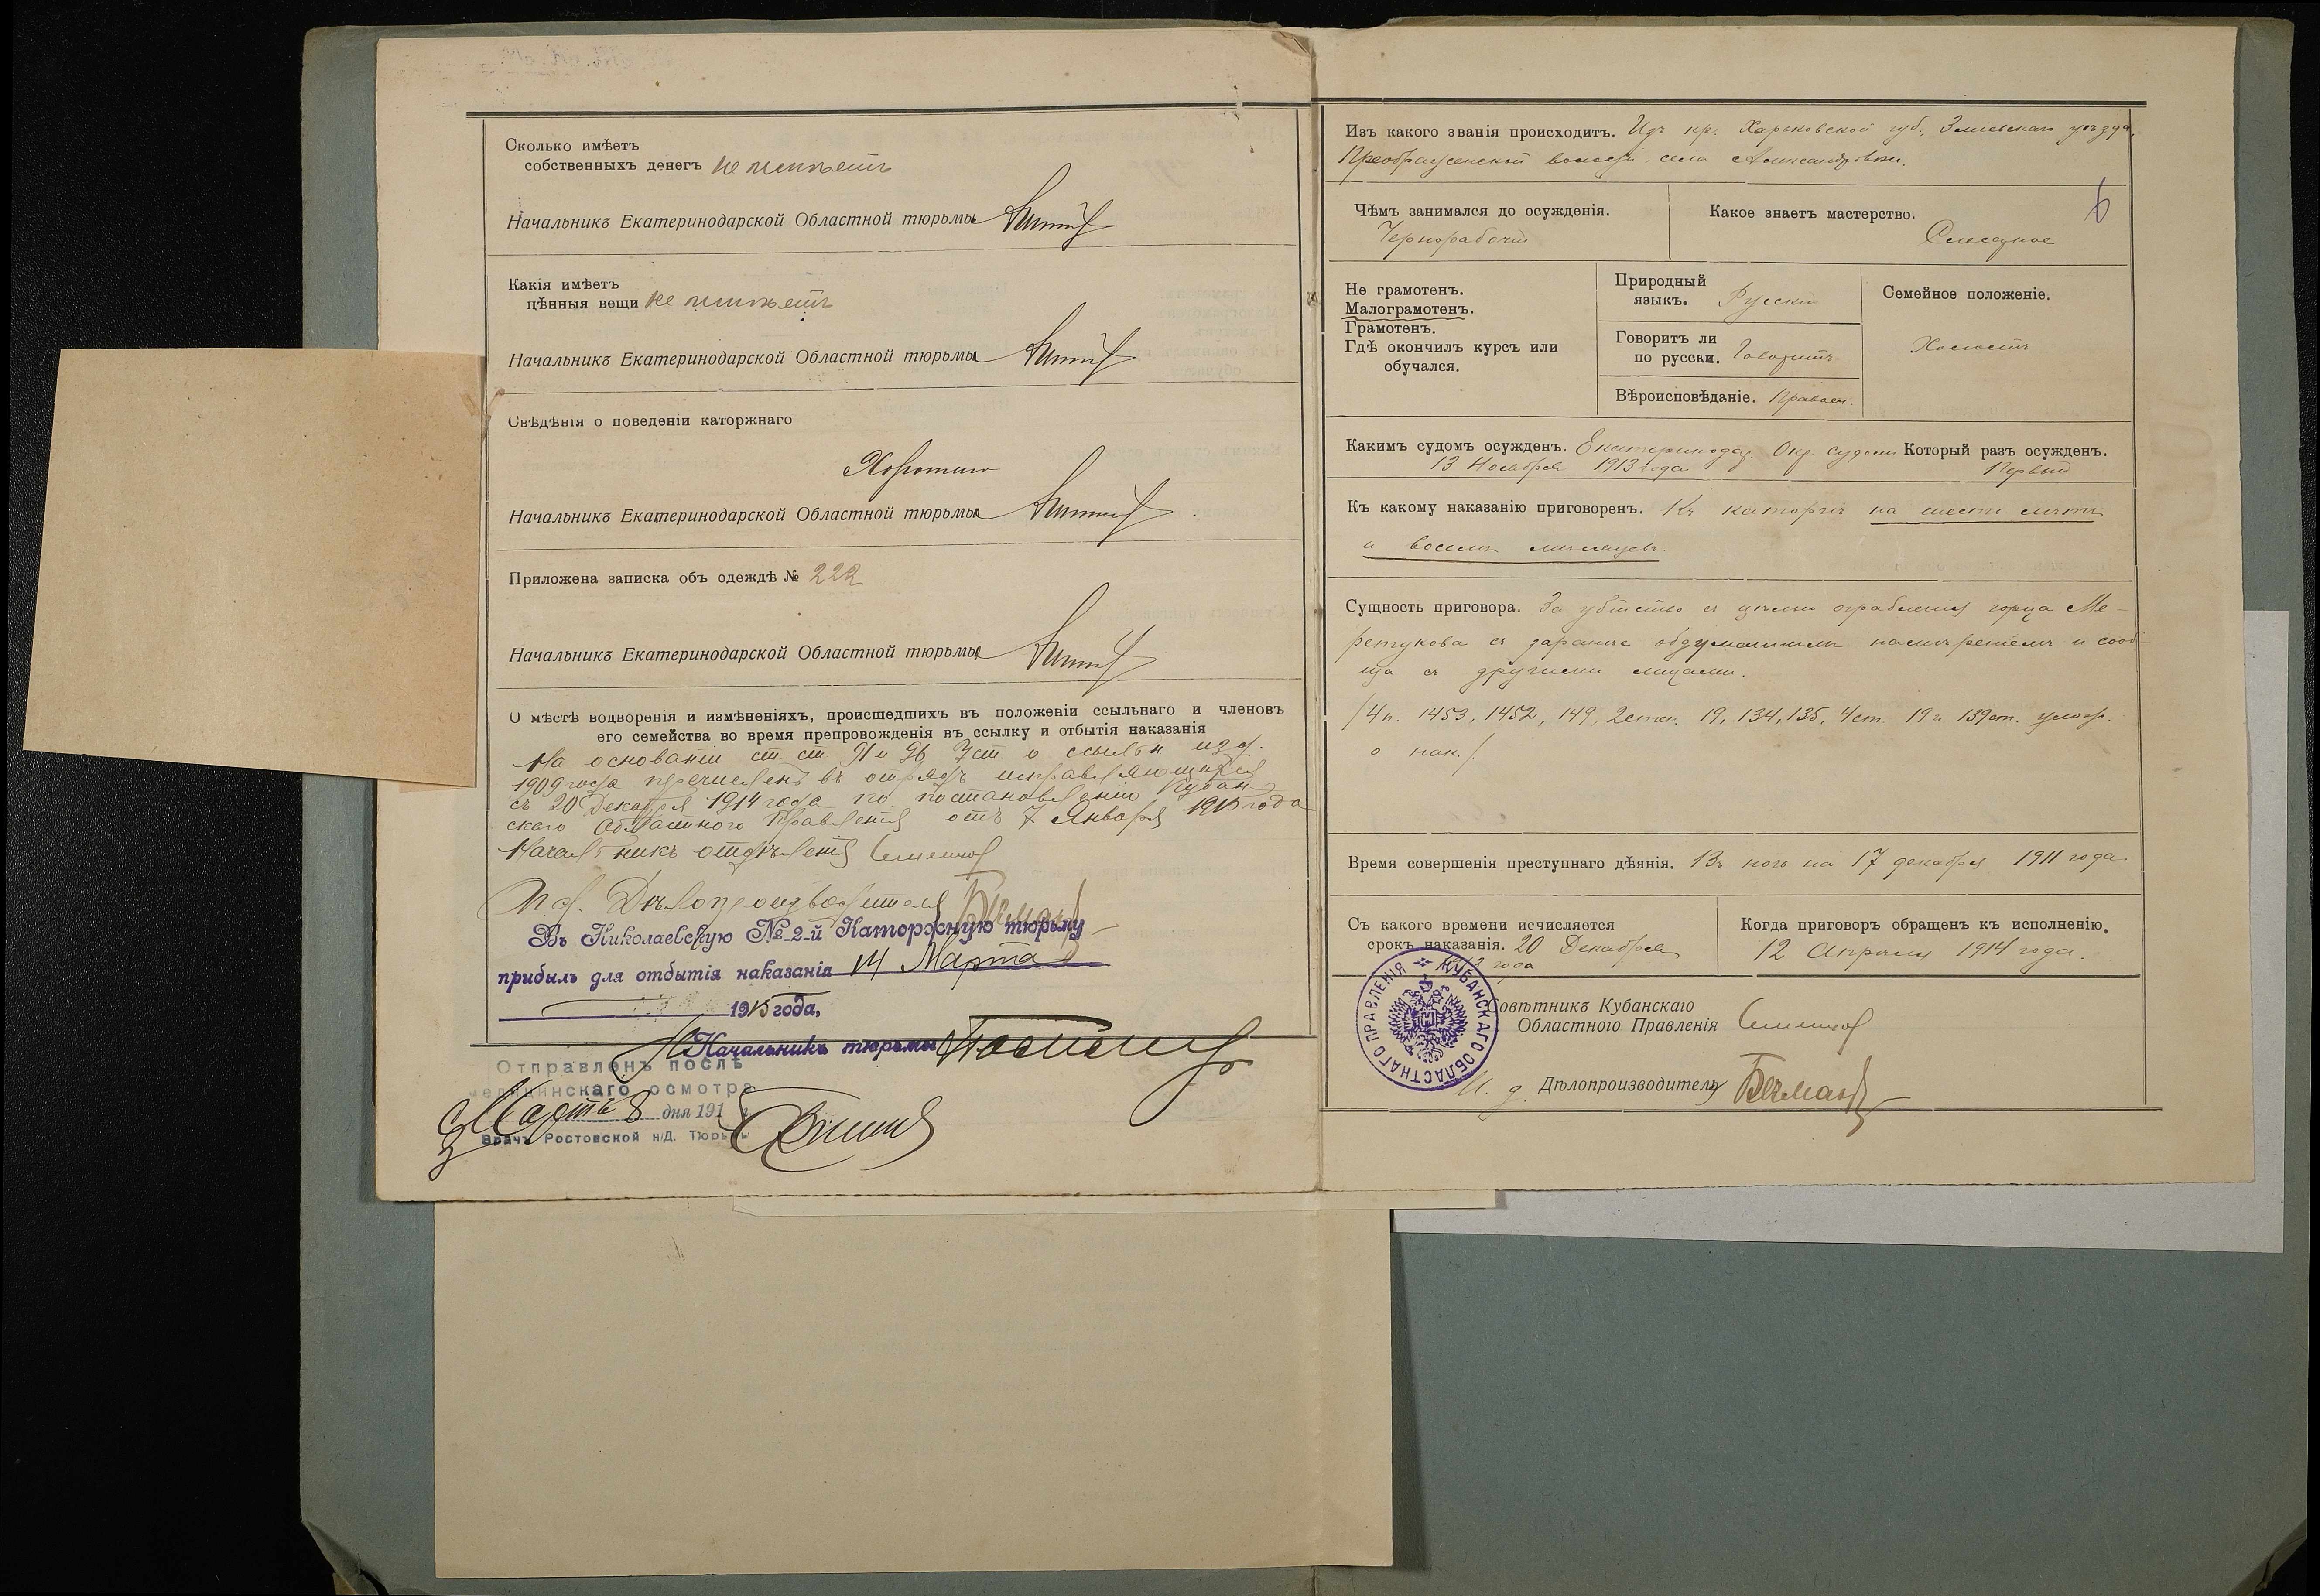 Сколько имѣетъ
собственныхъ денегъ не имѣетъ
Начальникъ Екатеринодарской Областной тюрьмы
Какія имѣетъ
цѣнныя вещи не имѣетъ
Начальникъ Екатеринодарской Областной тюрьмы
Свѣдѣнія о поведеніи каторжнаго
Хорошаго
Начальникъ Екатеринодарской Областной тюрьмы
Приложена записка объ одеждѣ № 222
Начальникъ Екатеринодарской Областной тюрьмы
О мѣстѣ водворенія и измѣненіяхъ, происшедшихъ въ положеніи ссыльнаго и членовъ
его семейства во время препровожденія въ ссылку и отбытія наказанія
На основаніи ст. ст. 91 и 96 Уст о ссыльн изд.
1909 года перечисленъ въ отрядъ исправляющихся
съ 20 Декабря 1914 года по постановленію Кубан-
скаго Областного Правленія отъ 7 Января 1915 года
Начальникъ отдѣленія
И. д. Дѣлопроизводителя
Въ Николаевскую № 2-й Каторжную тюрьму
прибылъ для отбытія наказанія 14 Марта
1915 года.
Начальникъ тюрьмы
Отправленъ послѣ
медицинскаго осмотра
Марта 8 дня 191
Врачъ Ростовской н/Д. Тюрьмы
Изъ какого званія происходитъ. Изъ кр. Харьковской губ., Зміевскаго уѣзда,
Преображенской волости, села Александровки.
6
Чѣмъ занимался до осужденія.
Чернорабочій
Какое знаетъ мастерство.
Слесарное
Не грамотенъ.
Малограмотенъ.
Грамотенъ.
Гдѣ окончилъ курсъ или
обучался.
Природный
языкъ. Русскій
Говоритъ ли
по русски. Говоритъ
Вѣроисповѣданіе. Правосл.
Семейное положеніе.
Холостъ
Какимъ судомъ осужденъ. Екатеринодар. Окр. судомъ
13 Ноября 1913 года
Который разъ осужденъ.
Первый
Къ какому наказанію приговоренъ. Къ каторгѣ на шесть лѣтъ
и восемь мѣсяцевъ.
Сущность приговора. За убійство съ цѣлью ограбленія горца Ме-
ретукова съ заранѣе обдуманнымъ намѣреніемъ и сооб-
ща съ другими лицами.
/4 п. 1453, 1452, 149, 2 степ. 19, 134, 135, 4 ст. 19 и 139 ст. улож.
о нак./
Время совершенія преступнаго дѣянія. Въ ночь на 17 декабря 1911 года
Съ какого времени исчисляется
срокъ наказанія. 20 Декабря
года
Когда приговоръ обращенъ къ исполненію.
12 Апрѣля 1914 года.
КУБАНСКАГО ОБЛАСТНАГО ПРАВЛЕНІЯ
Совѣтникъ Кубанскаго
Областного Правленія
И. д. Дѣлопроизводителя